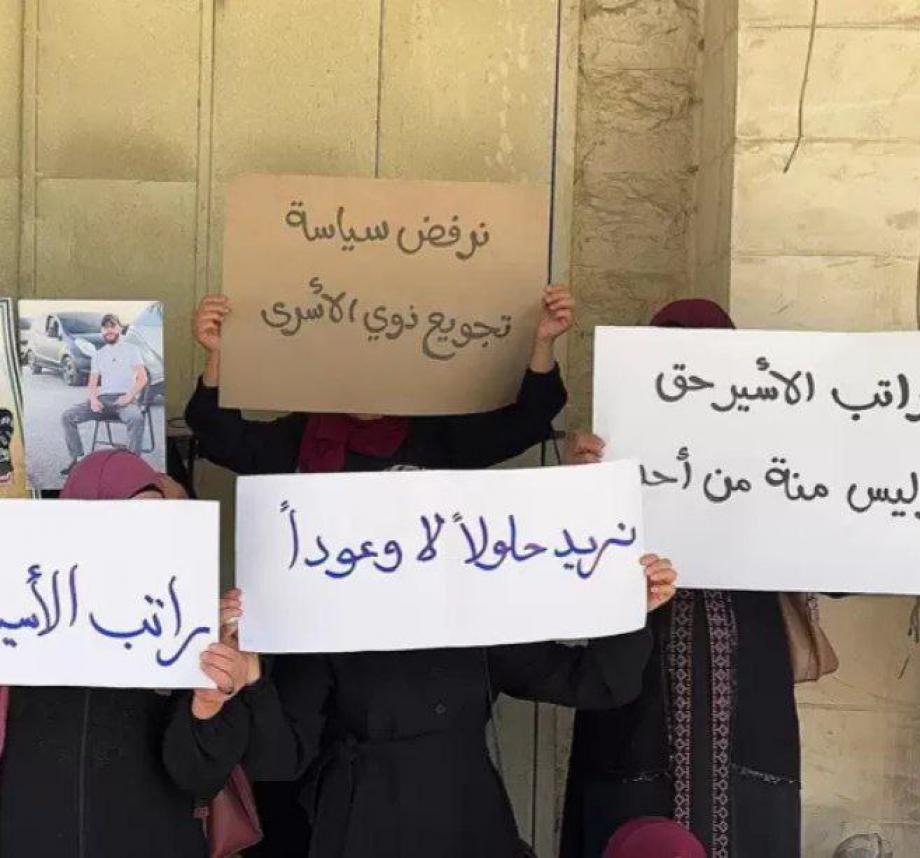 نرفض سياسة
تجويع ذوي الأسرى
راتب الأسير حق
وليس منة من أحد
نريد حلولاً لا وعوداً
راتب